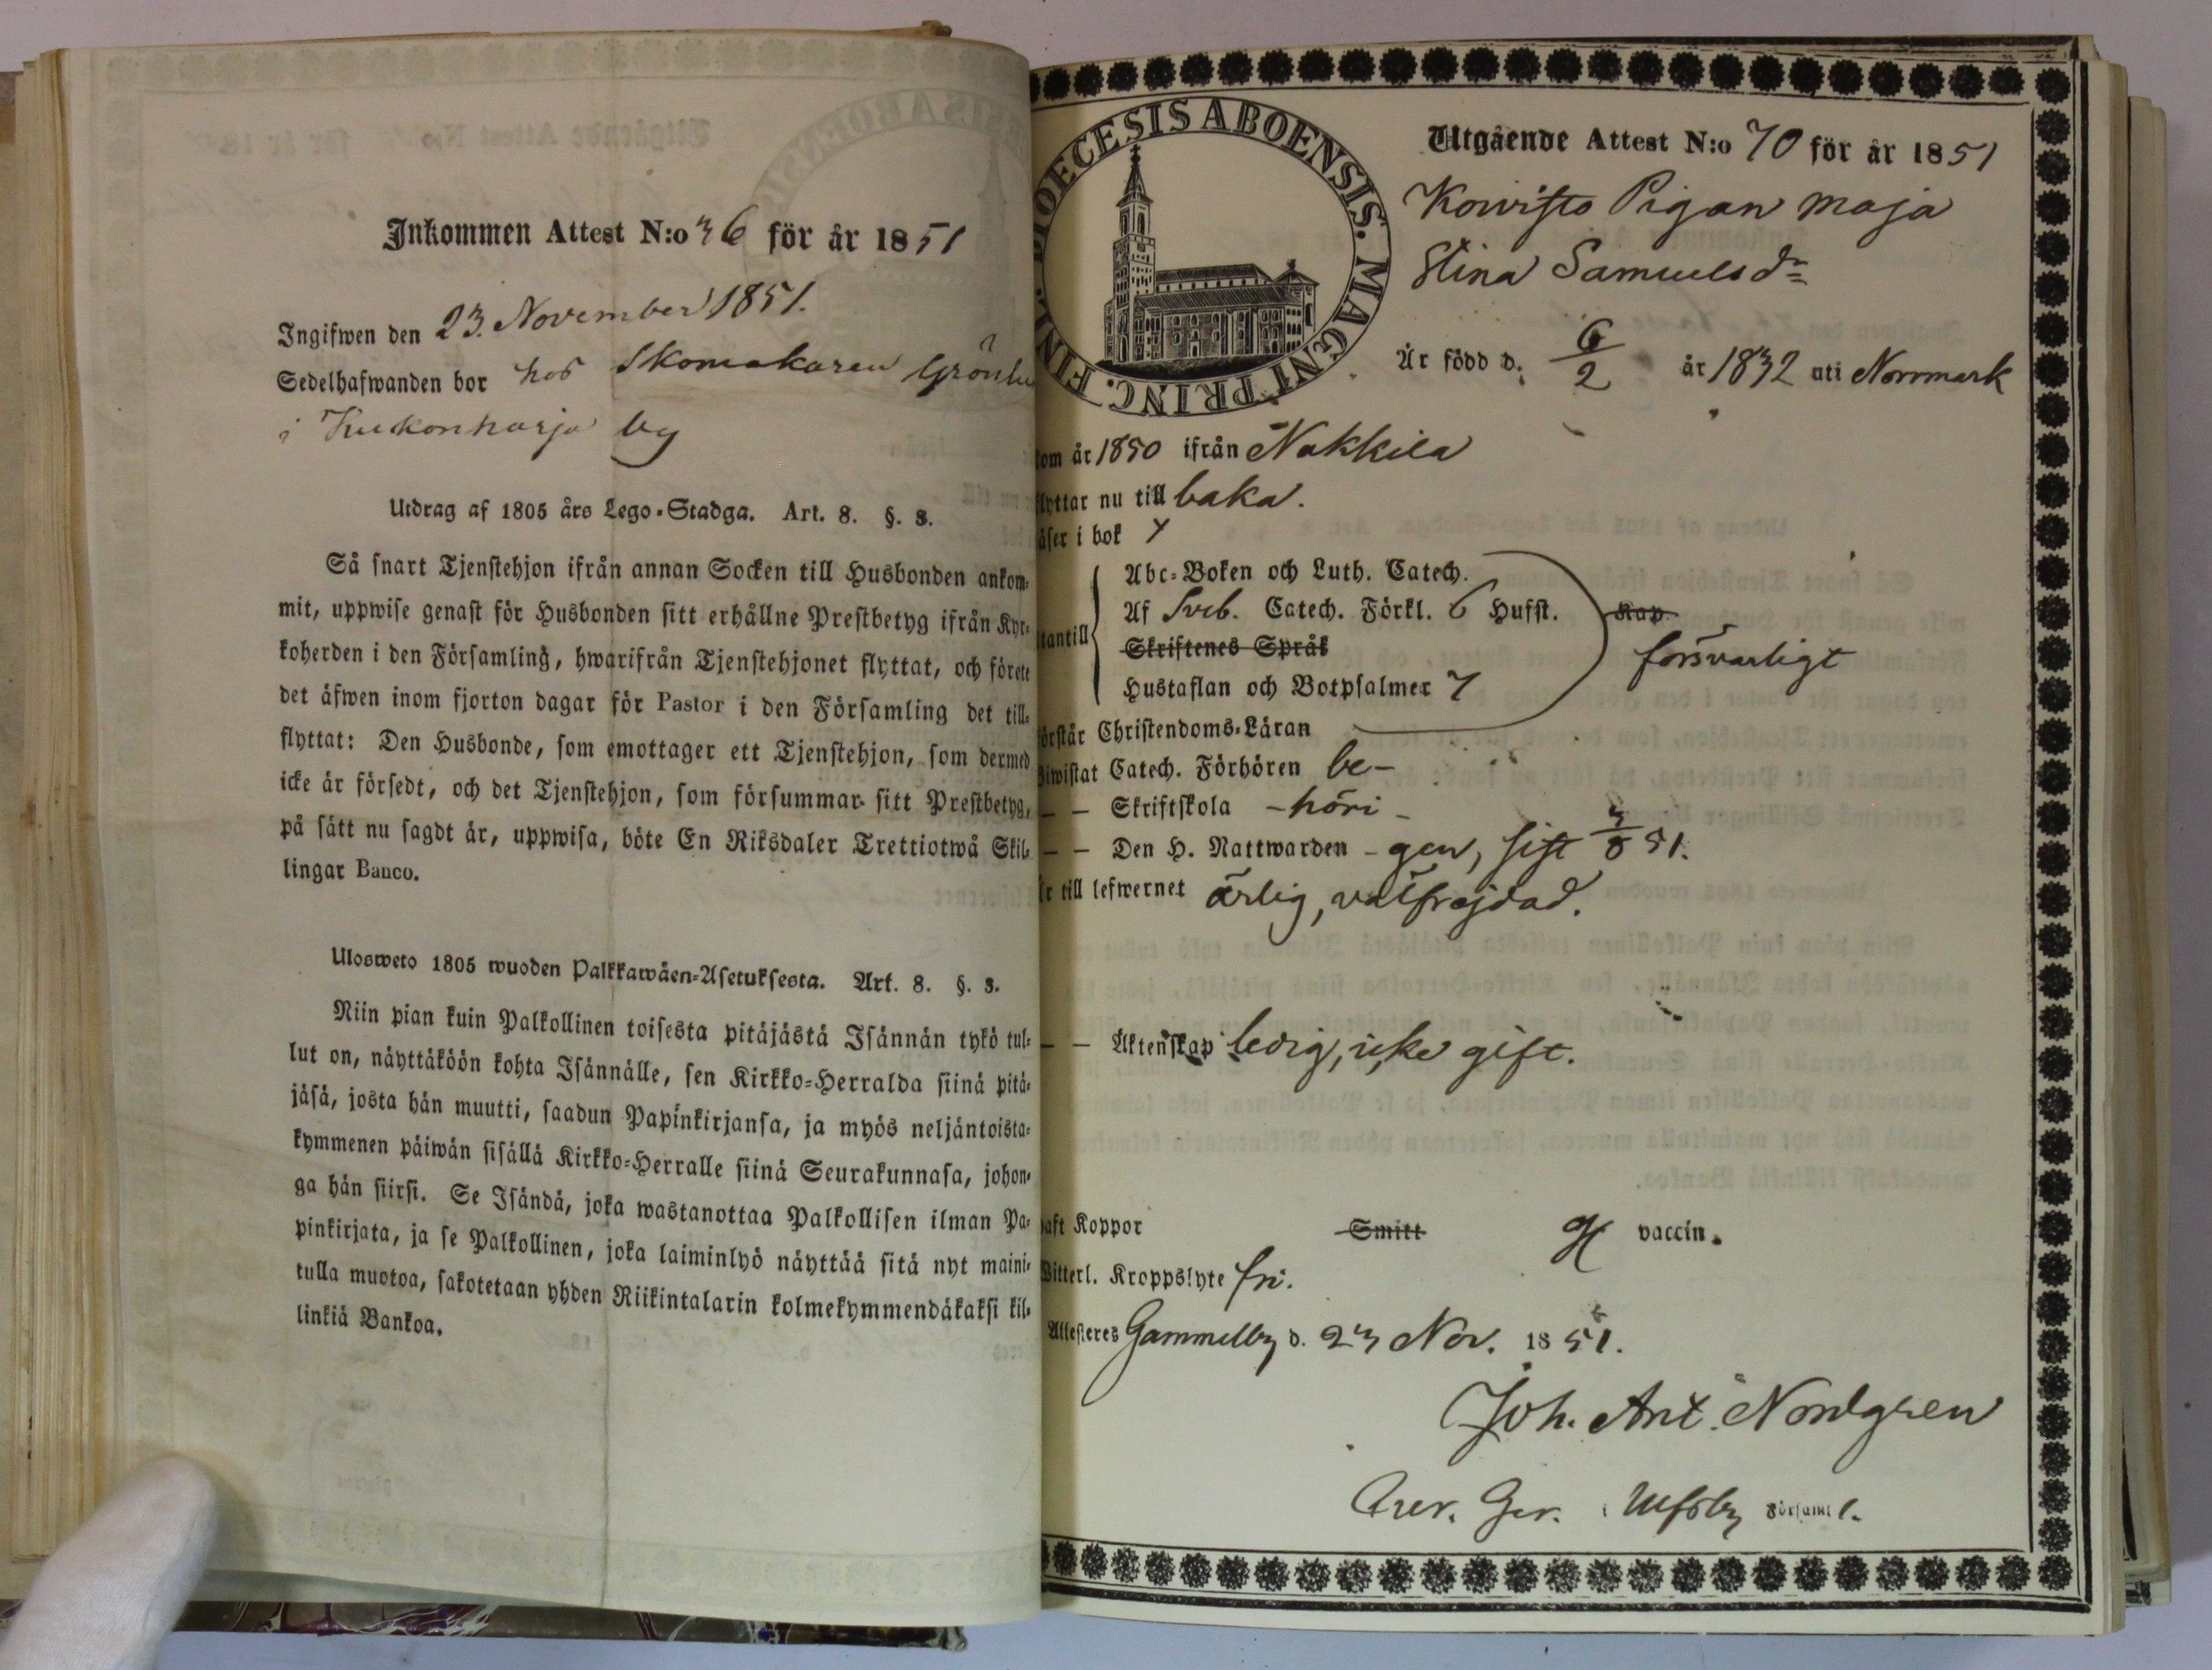 Inkommen Attest N:o 36 för år 1851
Ingifwen den 23. November 1851.
Sedelhafwanden bor hos Skomakaren
i Kukonharja by
Utdrag af 1805 års Lego-Stadga. Art. 8. §. 3.
Så snart Tjenstehjon ifrån annan Socken till Husbonden ankom-
mit, uppwise genast för Husbonden sitt erhållne Prestbetyg ifrån Kyr-
koherden i den Församling, hwarifrån Tjenstehjonet flyttat, och förete
det äfwen inom fjorton dagar för Pastor i den Församling det till-
flyttat: Den Husbonde, som emottager ett Tjenstehjon, som dermed
icke är försedt, och det Tjenstehjon, som försummar sitt Prestbetyg,
på sätt nu sagdt är, uppwisa, böte En Riksdaler Trettiotwå Skil-
lingar Banco.
Ulosweto 1805 wuoden Palkkawäen-Asetuksesta. Art. 8. §. 3.
Niin pian kuin Palkollinen toisesta pitäjästä Isännän tykö tul-
lut on, näyttäköön kohta Isännälle, sen Kirkko-Herralda siinä pitä-
jäsä, josta hän muutti, saadun Papinkirjansa, ja myös neljäntoista-
kymmenen päiwän sisällä Kirkko-Herralle siinä Seurakunnasa, johon-
ga hän siirsi. Se Isändä, joka wastanottaa Palkollisen ilman Pa-
pinkirjata, ja se Palkollinen, joka laiminlyö näyttää sitä nyt maini-
tulla muotoa, sakotetaan yhden Riikintalarin kolmekymmendäkaksi kil-
linkiä Bankoa.
DIOECESIS ABOENSIS. MAGNI PRINC. FINL.
Utgående Attest N:o 70 för år 1851
Koivisto Pigan Maja
Stina Samuelsdr
Är född d. 6/2 år 1832 uti Norrmark
kom år 1850 ifrån Nakkila
flyttar nu till baka.
läser i bok 7
Abc-Boken och Luth. Catech.
Af Sveb. Catech. Förkl. 6 Hufst. Kap.
Skriftenes Språk försvarligt
Hustaflan och Botpsalmer 7
förstår Christendoms-Läran
Biwistat Catech. Förhören be-
— — Skriftskola -höri-
— — Den H. Nattwarden -gen, sist 3/8 51.
är till lefwernet ärlig, välfrejdad.
— — Äktenskap ledig, icke gift.
haft Koppor Smitt vaccin.
Witterl. Kroppslyte fri.
Attesteres Gammelby d. 23 Nov. 1851.
Joh. Ant. Nordgren
i Ulfsby Församl.